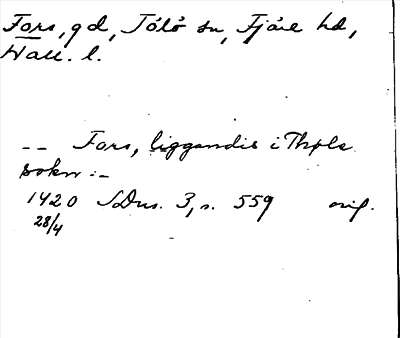 Fors, gd, Tölö sn, Fjäre hd,
Hall. l.
-- Fors, liggandis i Thøle
sokn :-
1420 SDns. 3, s. 559 orig.
28/4